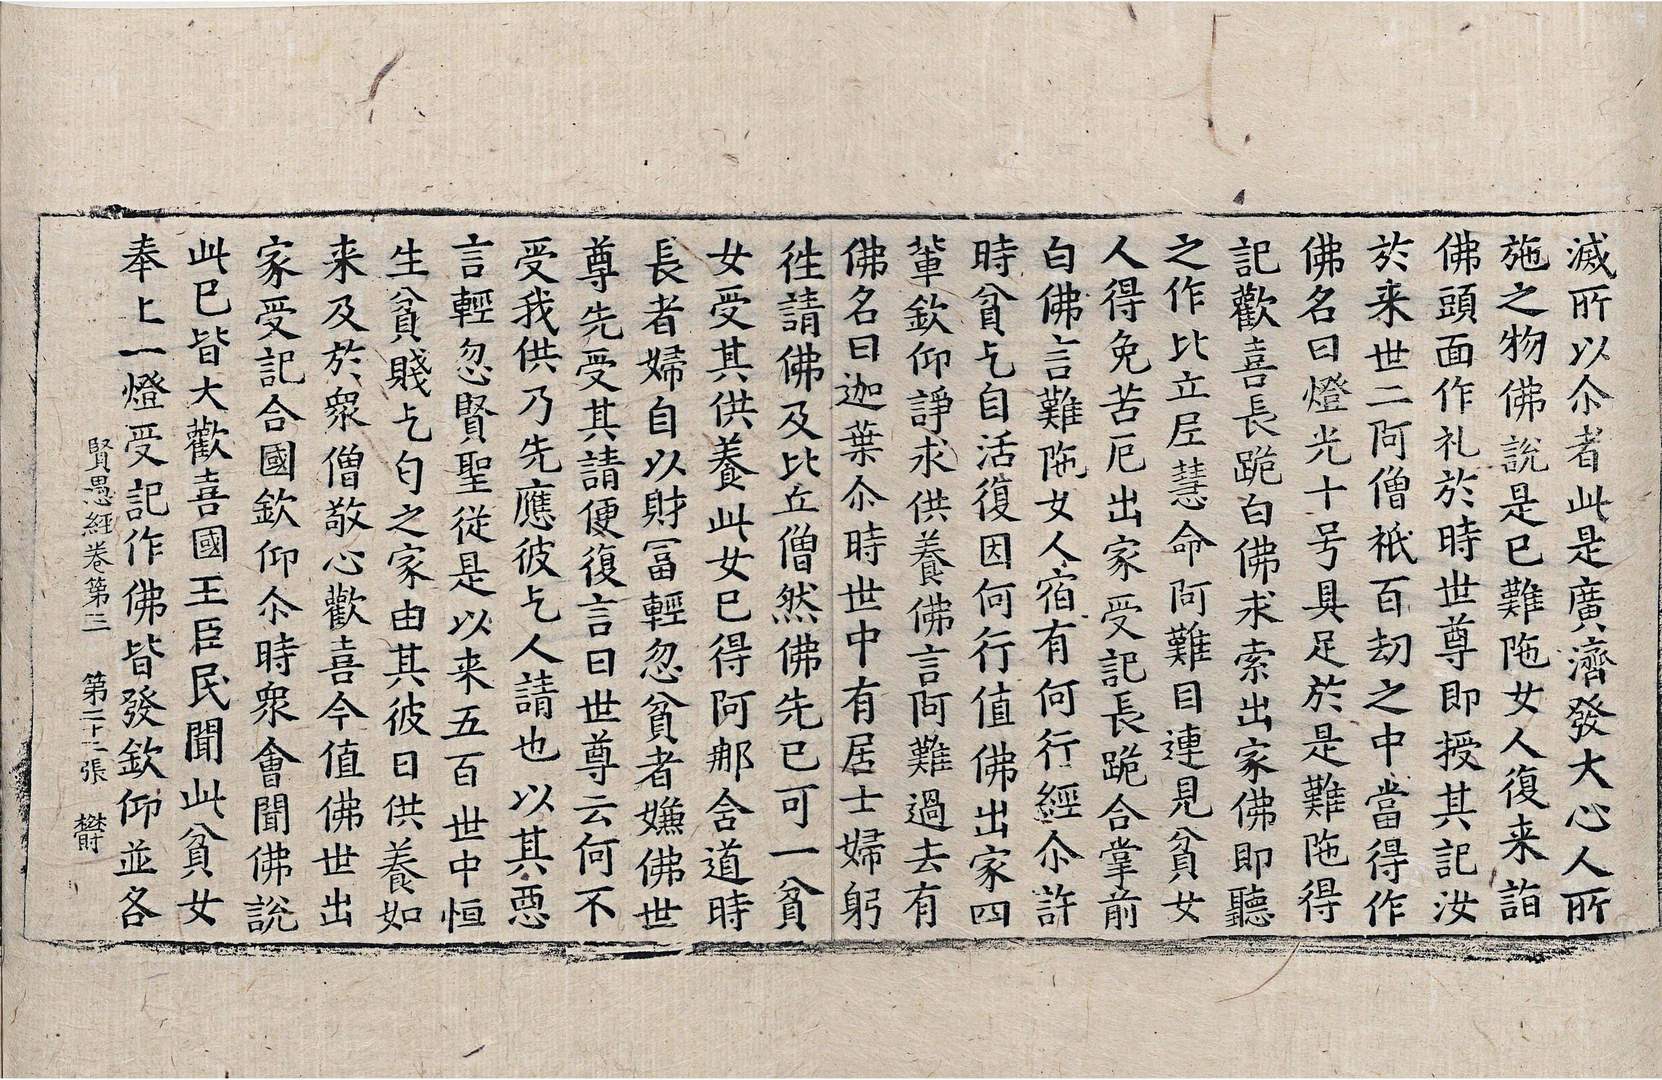 滅所以尒者此是廣濟發大心人所
施之物佛說是已難陁女人復来詣
佛頭面作礼於時世尊即授其記汝
於来世二阿僧祇百劫之中當得作
佛名曰燈光十号具足於是難陁得
記歡喜長跪白佛求索出家佛即聽
之作比丘尼慧命阿難目連見貧女
人得免苦厄出家受記長跪合掌前
白佛言難陁女人宿有何行經尒許
時貧乞自活復因何行值佛出家四
輩欽仰諍求供養佛言阿難過去有
佛名曰迦葉尒時世中有居士婦躬
往請佛及比丘僧然佛先已可一貧
女受其供養此女已得阿那含道時
長者婦自以財冨輕忽貧者嫌佛世
尊先受其請便復言曰世尊云何不
受我供乃先應彼乞人請也以其惡
言輕忽賢聖從是以来五百世中恒
生貧賤乞匄之家由其彼日供養如
来及於衆僧敬心歡喜今值佛世出
家受記合國欽仰尒時衆會聞佛說
此已皆大歡喜國王臣民聞此貧女
奉上一燈受記作佛皆發欽仰並各
賢愚經卷第三　第二十二張　欝